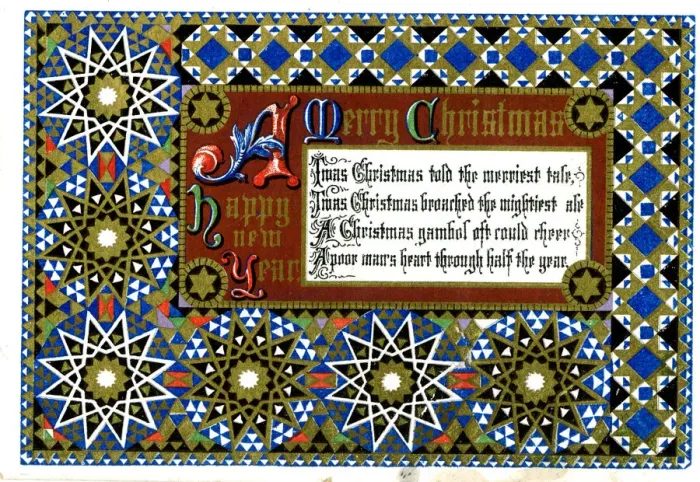 A Merry Christmas
happy
new
Year
Twas Christmas told the merriest tale,
Twas Christmas broached the mightiest ale
A Christmas gambol oft could cheer
A poor man's heart through half the year.